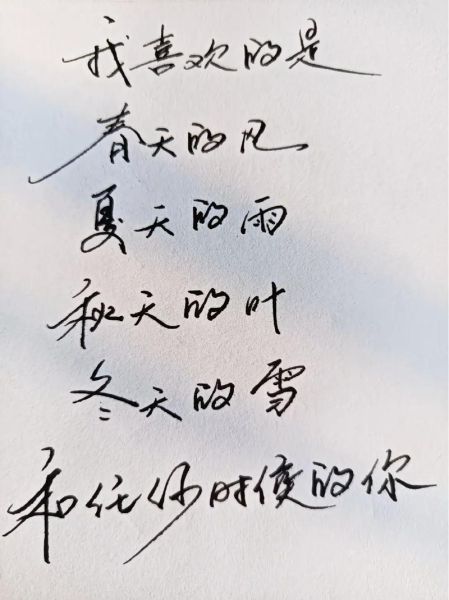 我喜欢的是
春天的风
夏天的雨
秋天的叶
冬天的雪
和任何时候的你